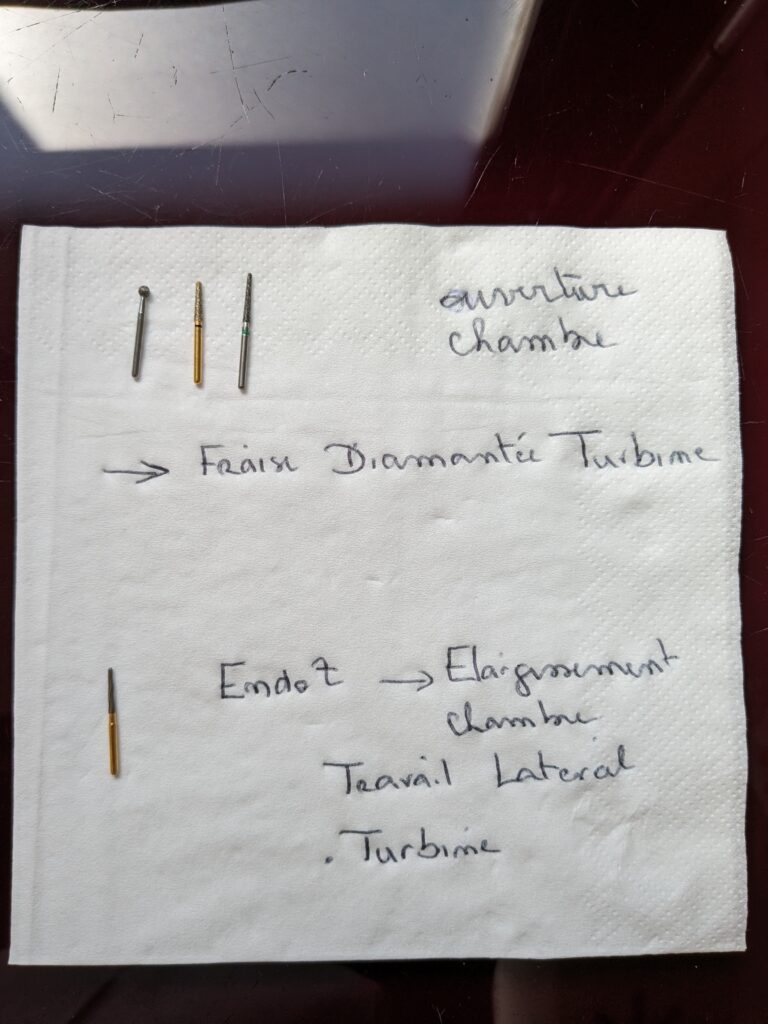 ouverture
chambre
→ Fraise Diamantée Turbine
Endo Z → Elargissement
chambre
Travail Lateral
. Turbine